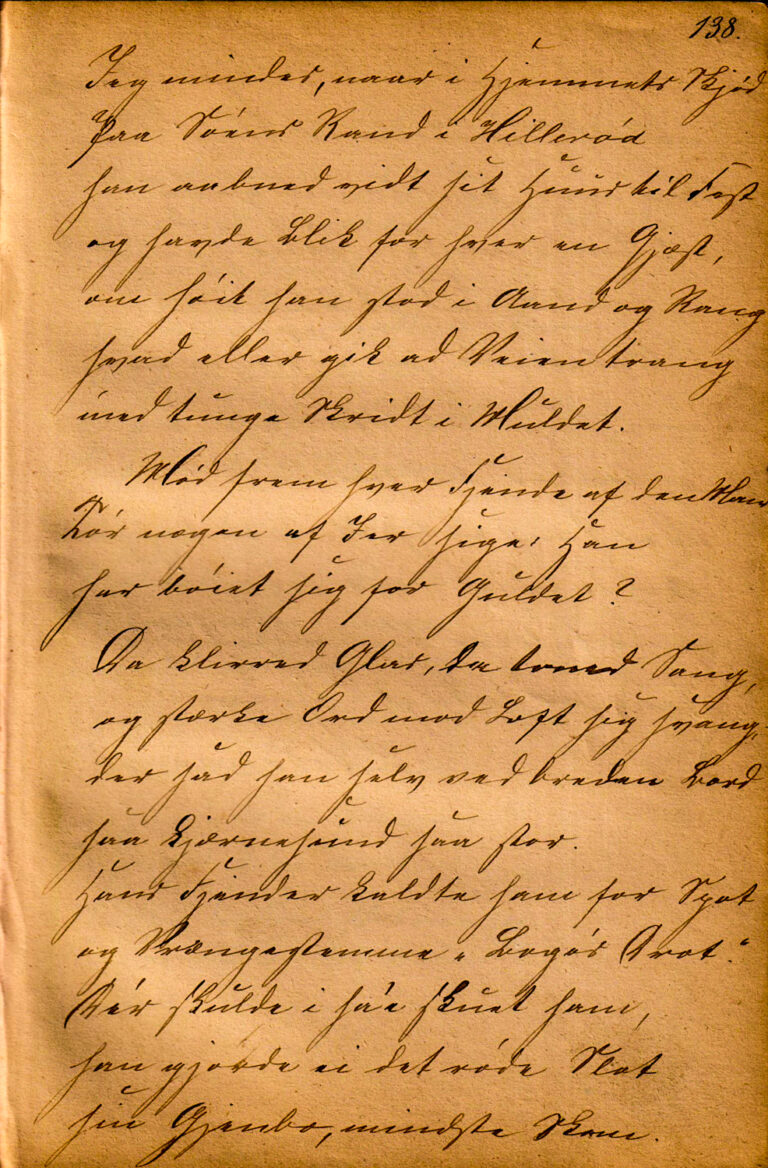 138.
Jeg mindes, naar i Hjemmets Skjød
paa Søens Rand i Hillerød
han aabned vidt sit Huus til Fest
og havde Blik for hver en Gjæst,
om høit han stod i Aand og Rang
hvad eller gik ad Veien trang
med tunge Skridt i Muldet.
Mød frem hver Fjende af den Man
Tør nogen af Jer sige: Han
har bøiet sig for Guldet?
Da klirred Glas, da toned Sang,
og stærke Ord mod Loft sig svang,
der sad han selv ved breden Bord
saa kjærnesund saa stor.
Hans Fjender kaldte ham for Spot
og Vrængestemme „Bogøs Drot.“
Dér skulde i ha'e skuet ham,
han gjorde ei det røde Slot
sin Gjenbo, mindste Skam.